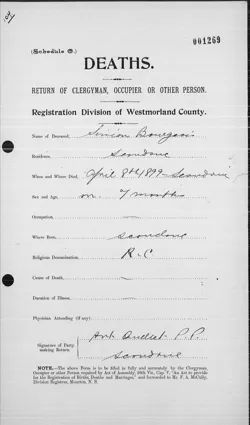 001269
(Schedule C.)
DEATHS.
RETURN OF CLERGYMAN, OCCUPIER OR OTHER PERSON.
Registration Division of Westmorland County.
Name of Deceased, Simeon Bourgeois
Residence, Scoudouc
When and Where Died, April 8th 1899 Scoudouc
Sex and Age, m. 7 months
Occupation, —
Where Born, Scoudouc
Religious Denomination, R.C
Cause of Death, —
Duration of Illness, —
Physician Attending (if any)
Signature of Party making Return, P.P.
Scoudouc
NOTE.—The above Form is to be filled in fully and accurately by the Clergyman,
Occupier or other Person required by Act of Assembly, 50th Vic., Cap. V. "An Act to provide
for the Registration of Births, Deaths and Marriages," and forwarded to Mr. F. A. McCully,
Division Registrar, Moncton, N. B.